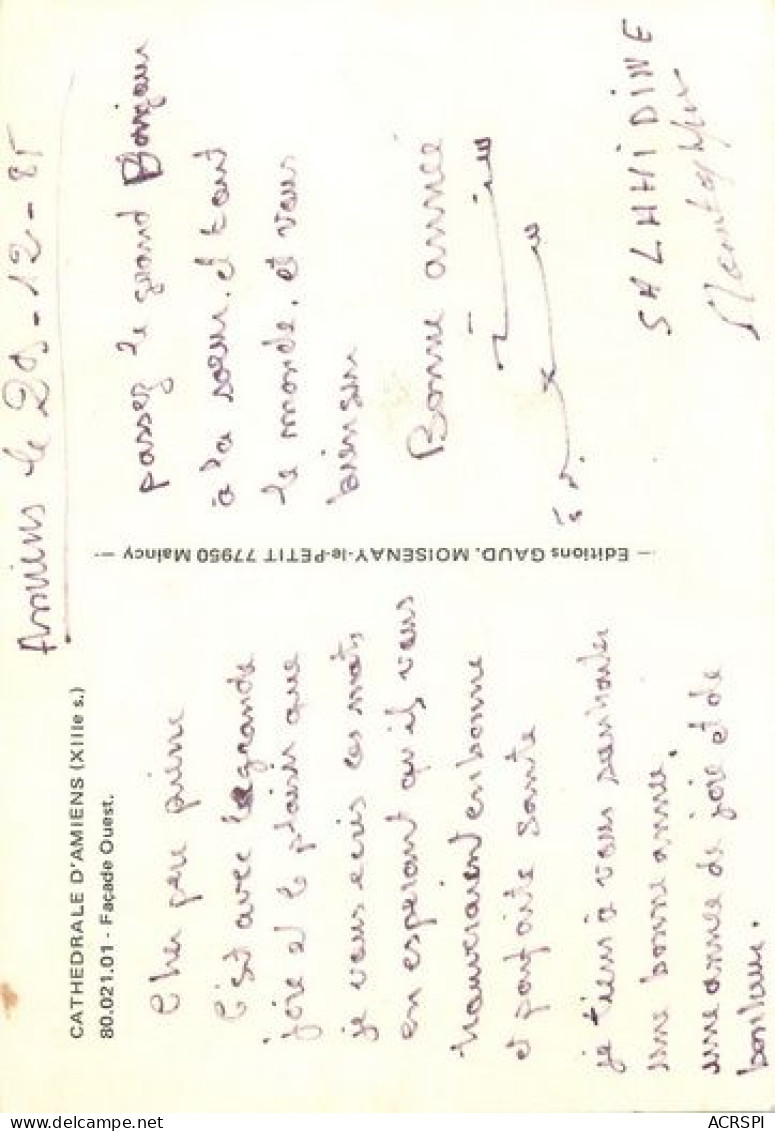 CATHEDRALE D'AMIENS (XIIIe s.)
80.021.01 - Façade Ouest.
Amiens le 29-12-85
Cher père pierre
C'est avec le grande
joie et le plaisir que
je vous ecris ces mots,
en esperant qu'ils vous
trouveraient en bonne
et parfaite santé
je tiens à vous souhaiter
une bonne année,
une année de joie et de
bonheur.
— Editions GAUD. MOISENAY-le-PETIT 77950 Maincy —
passez le grand Bonjour
à la soeur. et tout
le monde. et vous
bien sur
Bonne année
SALAHIDINE
DELCAMPE.NET
ACRSPI